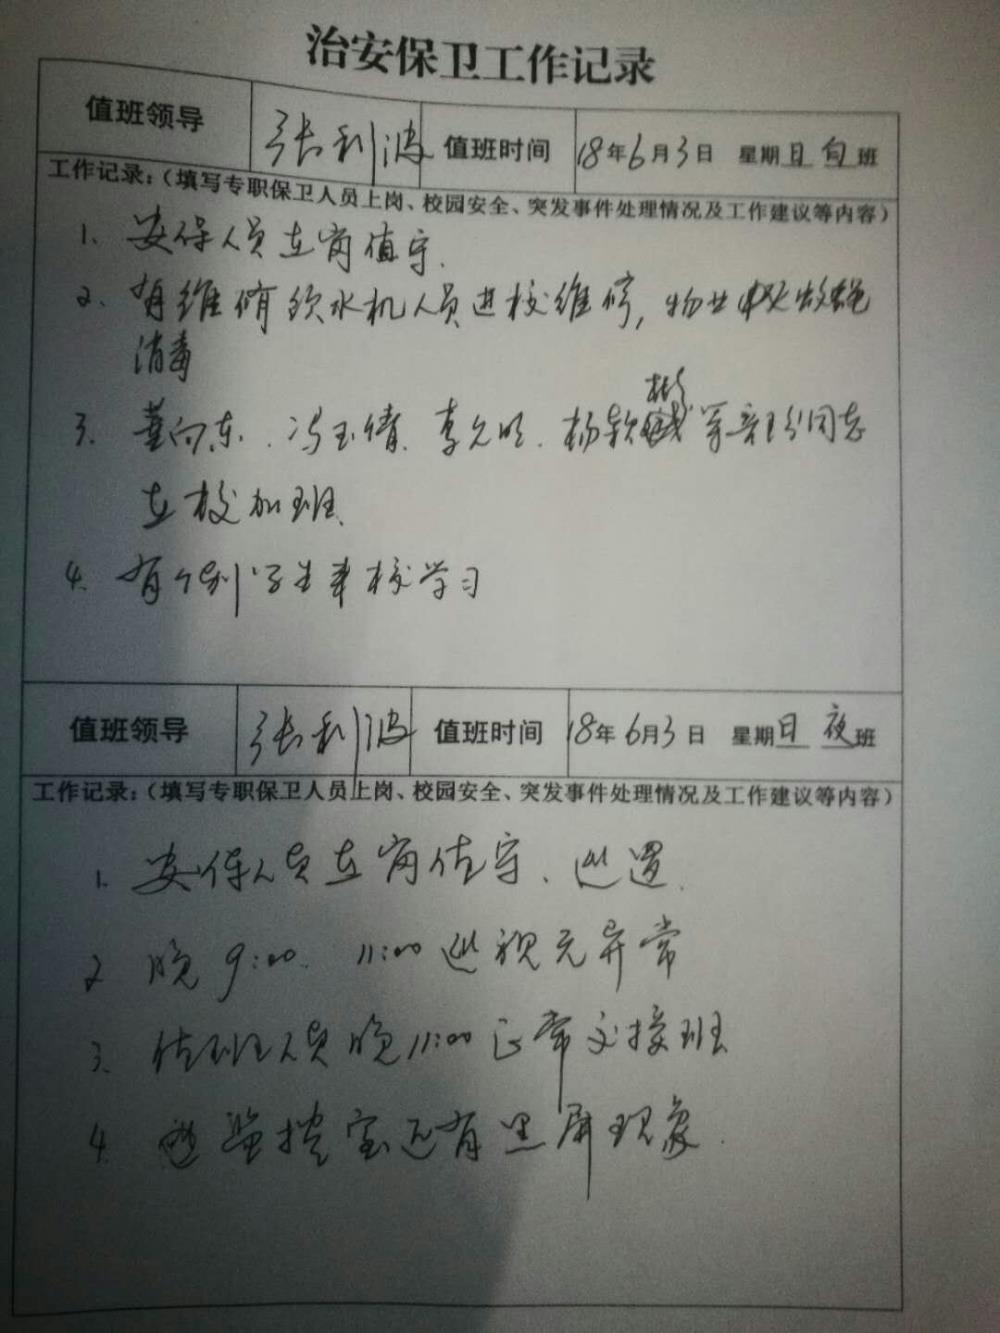 治安保卫工作记录
值班领导 张利波 值班时间 18年6月3日 星期日白班
工作记录：（填写专职保卫人员上岗、校园安全、突发事件处理情况及工作建议等内容）
1、安保人员在岗值守.
2、有维修饮水机人员进校维修，物业
消毒
3、董向东、冯玉倩、李允明、杨 同志
在校加班、
4、有个别学生来校学习
值班领导 张利波 值班时间 18年6月3日 星期日 夜班
工作记录：（填写专职保卫人员上岗、校园安全、突发事件处理情况及工作建议等内容）
1、安保人员在岗值守、巡逻.
2、晚9:00、11:00巡视无异常
3、值班人员晚11:00正常交接班
4、监控室还有黑屏现象.